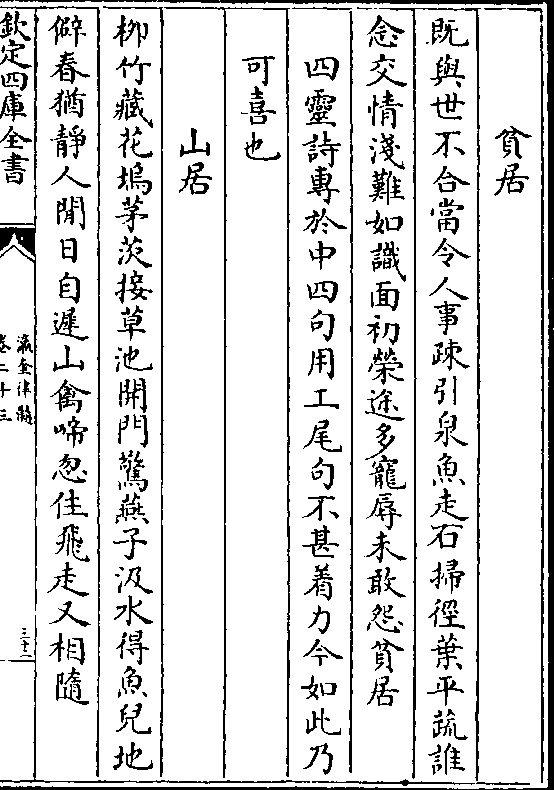 貧居
既與世不合當令人事疎引泉魚走石掃徑葉平蔬誰
念交情淺難如識面初榮途多寵辱未敢怨貧居
四靈詩專於中四句用工尾句不甚着力今如此乃
可喜也
山居
柳竹藏花塢茅茨接草池開門驚燕子汲水得魚兒地
僻春猶靜人閒日自遲山禽啼忽住飛走又相隨
欽定四庫全書
瀛奎律髓
卷二十三
三十二